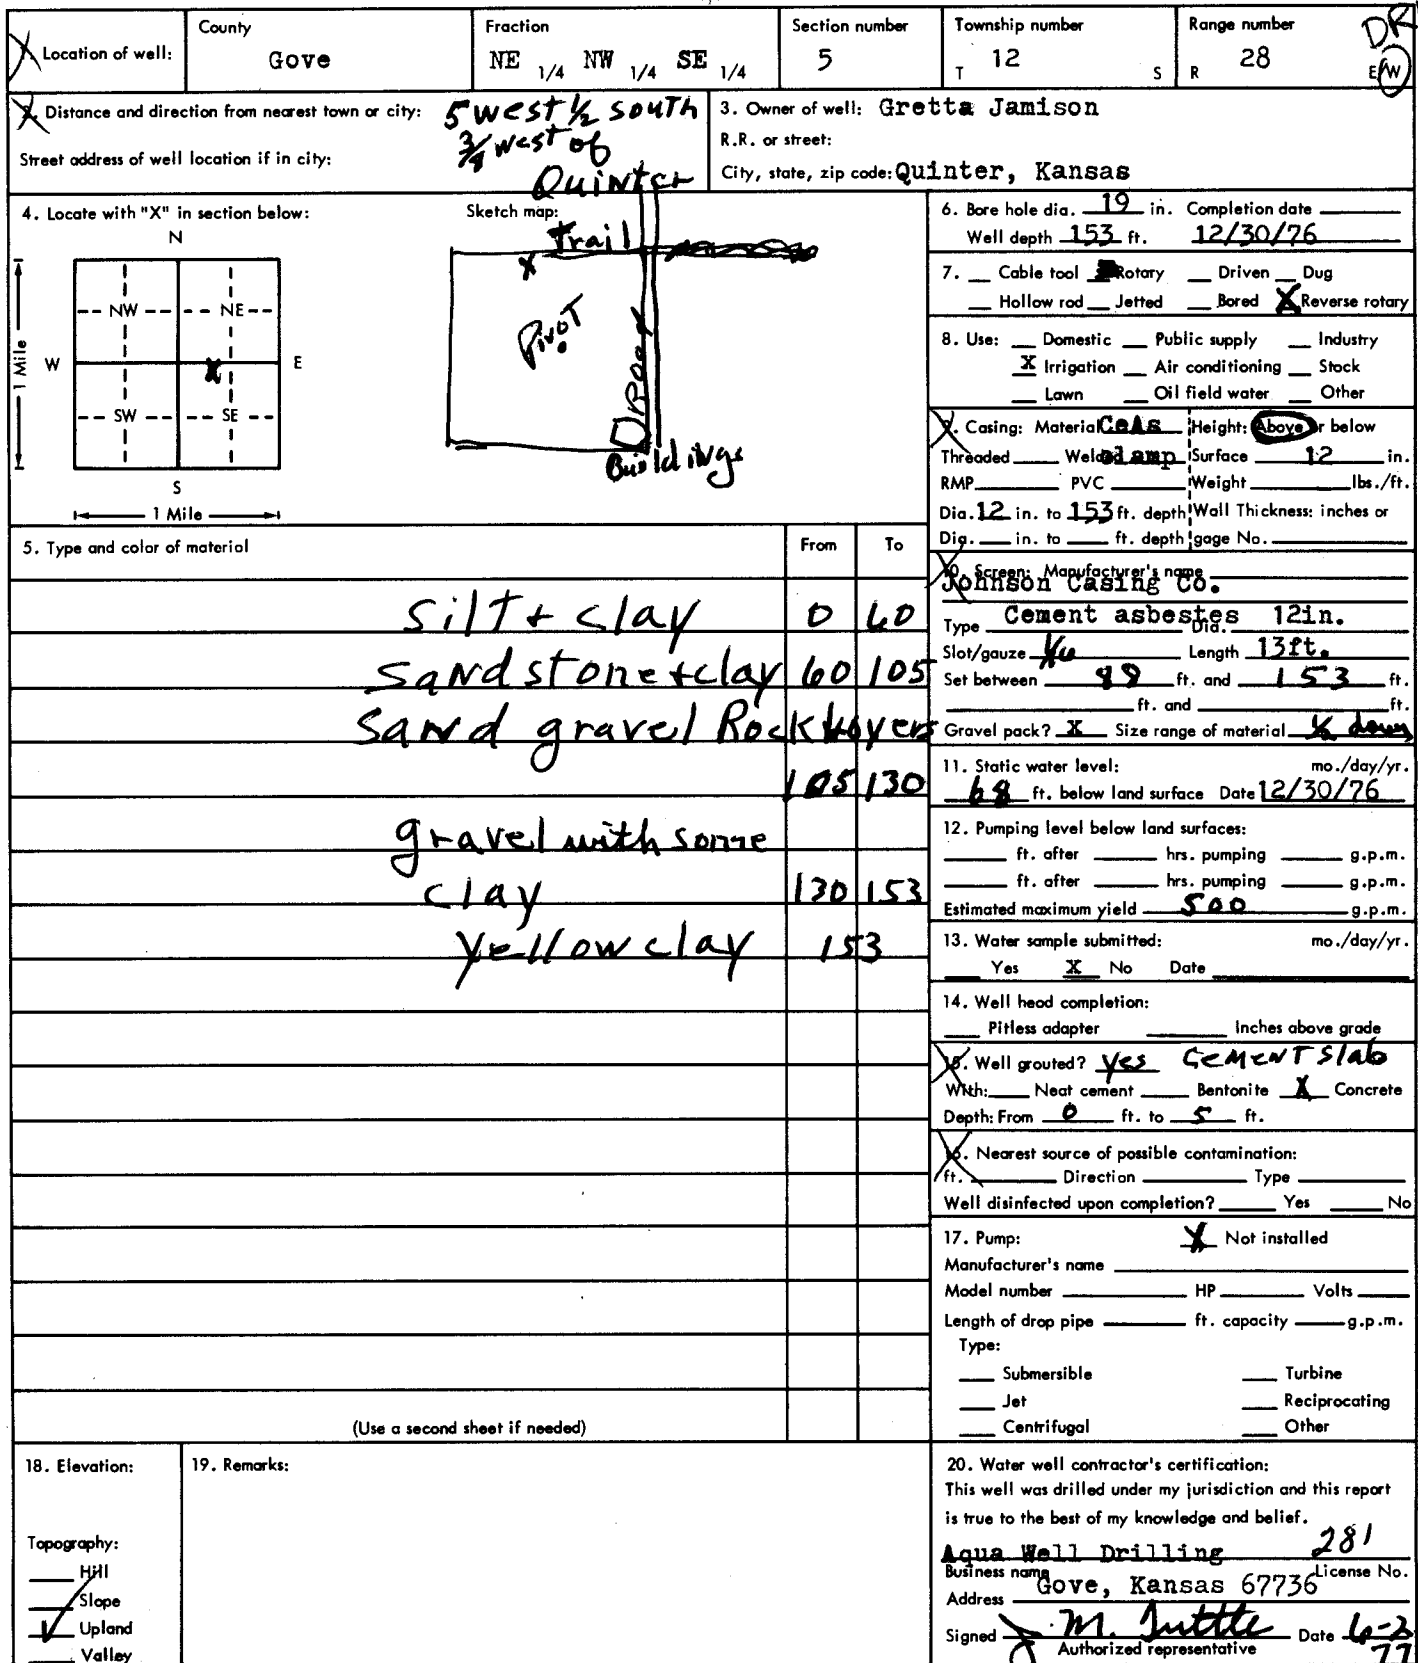 1. Location of well:
County
Gove
Fraction
NE 1/4 NW 1/4 SE 1/4
Section number
5
Township number
T 12 S
Range number
R 28 E/W
DR
2. Distance and direction from nearest town or city: 5 west 1/2 south
3/4 west of
Quinter
Street address of well location if in city:
3. Owner of well: Gretta Jamison
R.R. or street:
City, state, zip code: Quinter, Kansas
4. Locate with "X" in section below:
N
NW NE
W X E
SW SE
S
1 Mile
1 Mile
Sketch map:
Trail
X
Pivot
Road
Buildings
5. Type and color of material From To
silt + clay 0 60
Sandstone + clay 60 105
Sand gravel Rock layers
105 130
gravel with some
clay 130 153
yellow clay 153
(Use a second sheet if needed)
6. Bore hole dia. 19 in. Completion date
Well depth 153 ft. 12/30/76
7. Cable tool Rotary Driven Dug
Hollow rod Jetted Bored X Reverse rotary
8. Use: Domestic Public supply Industry
X Irrigation Air conditioning Stock
Lawn Oil field water Other
9. Casing: Material CeAs Height: Above or below
Threaded Welded clamp Surface 12 in.
RMP PVC Weight lbs./ft.
Dia. 12 in. to 153 ft. depth Wall Thickness: inches or
Dia. in. to ft. depth gage No.
10. Screen: Manufacturer's name
Johnson Casing Co.
Type Cement asbestes Dia. 12in.
Slot/gauze Length 13ft.
Set between ft. and 153 ft.
ft. and ft.
Gravel pack? X Size range of material down
11. Static water level: mo./day/yr.
68 ft. below land surface Date 12/30/76
12. Pumping level below land surfaces:
ft. after hrs. pumping g.p.m.
ft. after hrs. pumping g.p.m.
Estimated maximum yield 500 g.p.m.
13. Water sample submitted: mo./day/yr.
Yes X No Date
14. Well head completion:
Pitless adapter Inches above grade
15. Well grouted? yes Cement slab
With: Neat cement Bentonite X Concrete
Depth: From 0 ft. to 5 ft.
16. Nearest source of possible contamination:
ft. Direction Type
Well disinfected upon completion? Yes No
17. Pump: X Not installed
Manufacturer's name
Model number HP Volts
Length of drop pipe ft. capacity g.p.m.
Type:
Submersible Turbine
Jet Reciprocating
Centrifugal Other
18. Elevation:
Topography:
Hill
Slope
Upland
Valley
19. Remarks:
20. Water well contractor's certification:
This well was drilled under my jurisdiction and this report
is true to the best of my knowledge and belief.
Aqua Well Drilling 281
Business name License No.
Address Gove, Kansas 67736
Signed M. Tuttle Date 6-2
Authorized representative 77